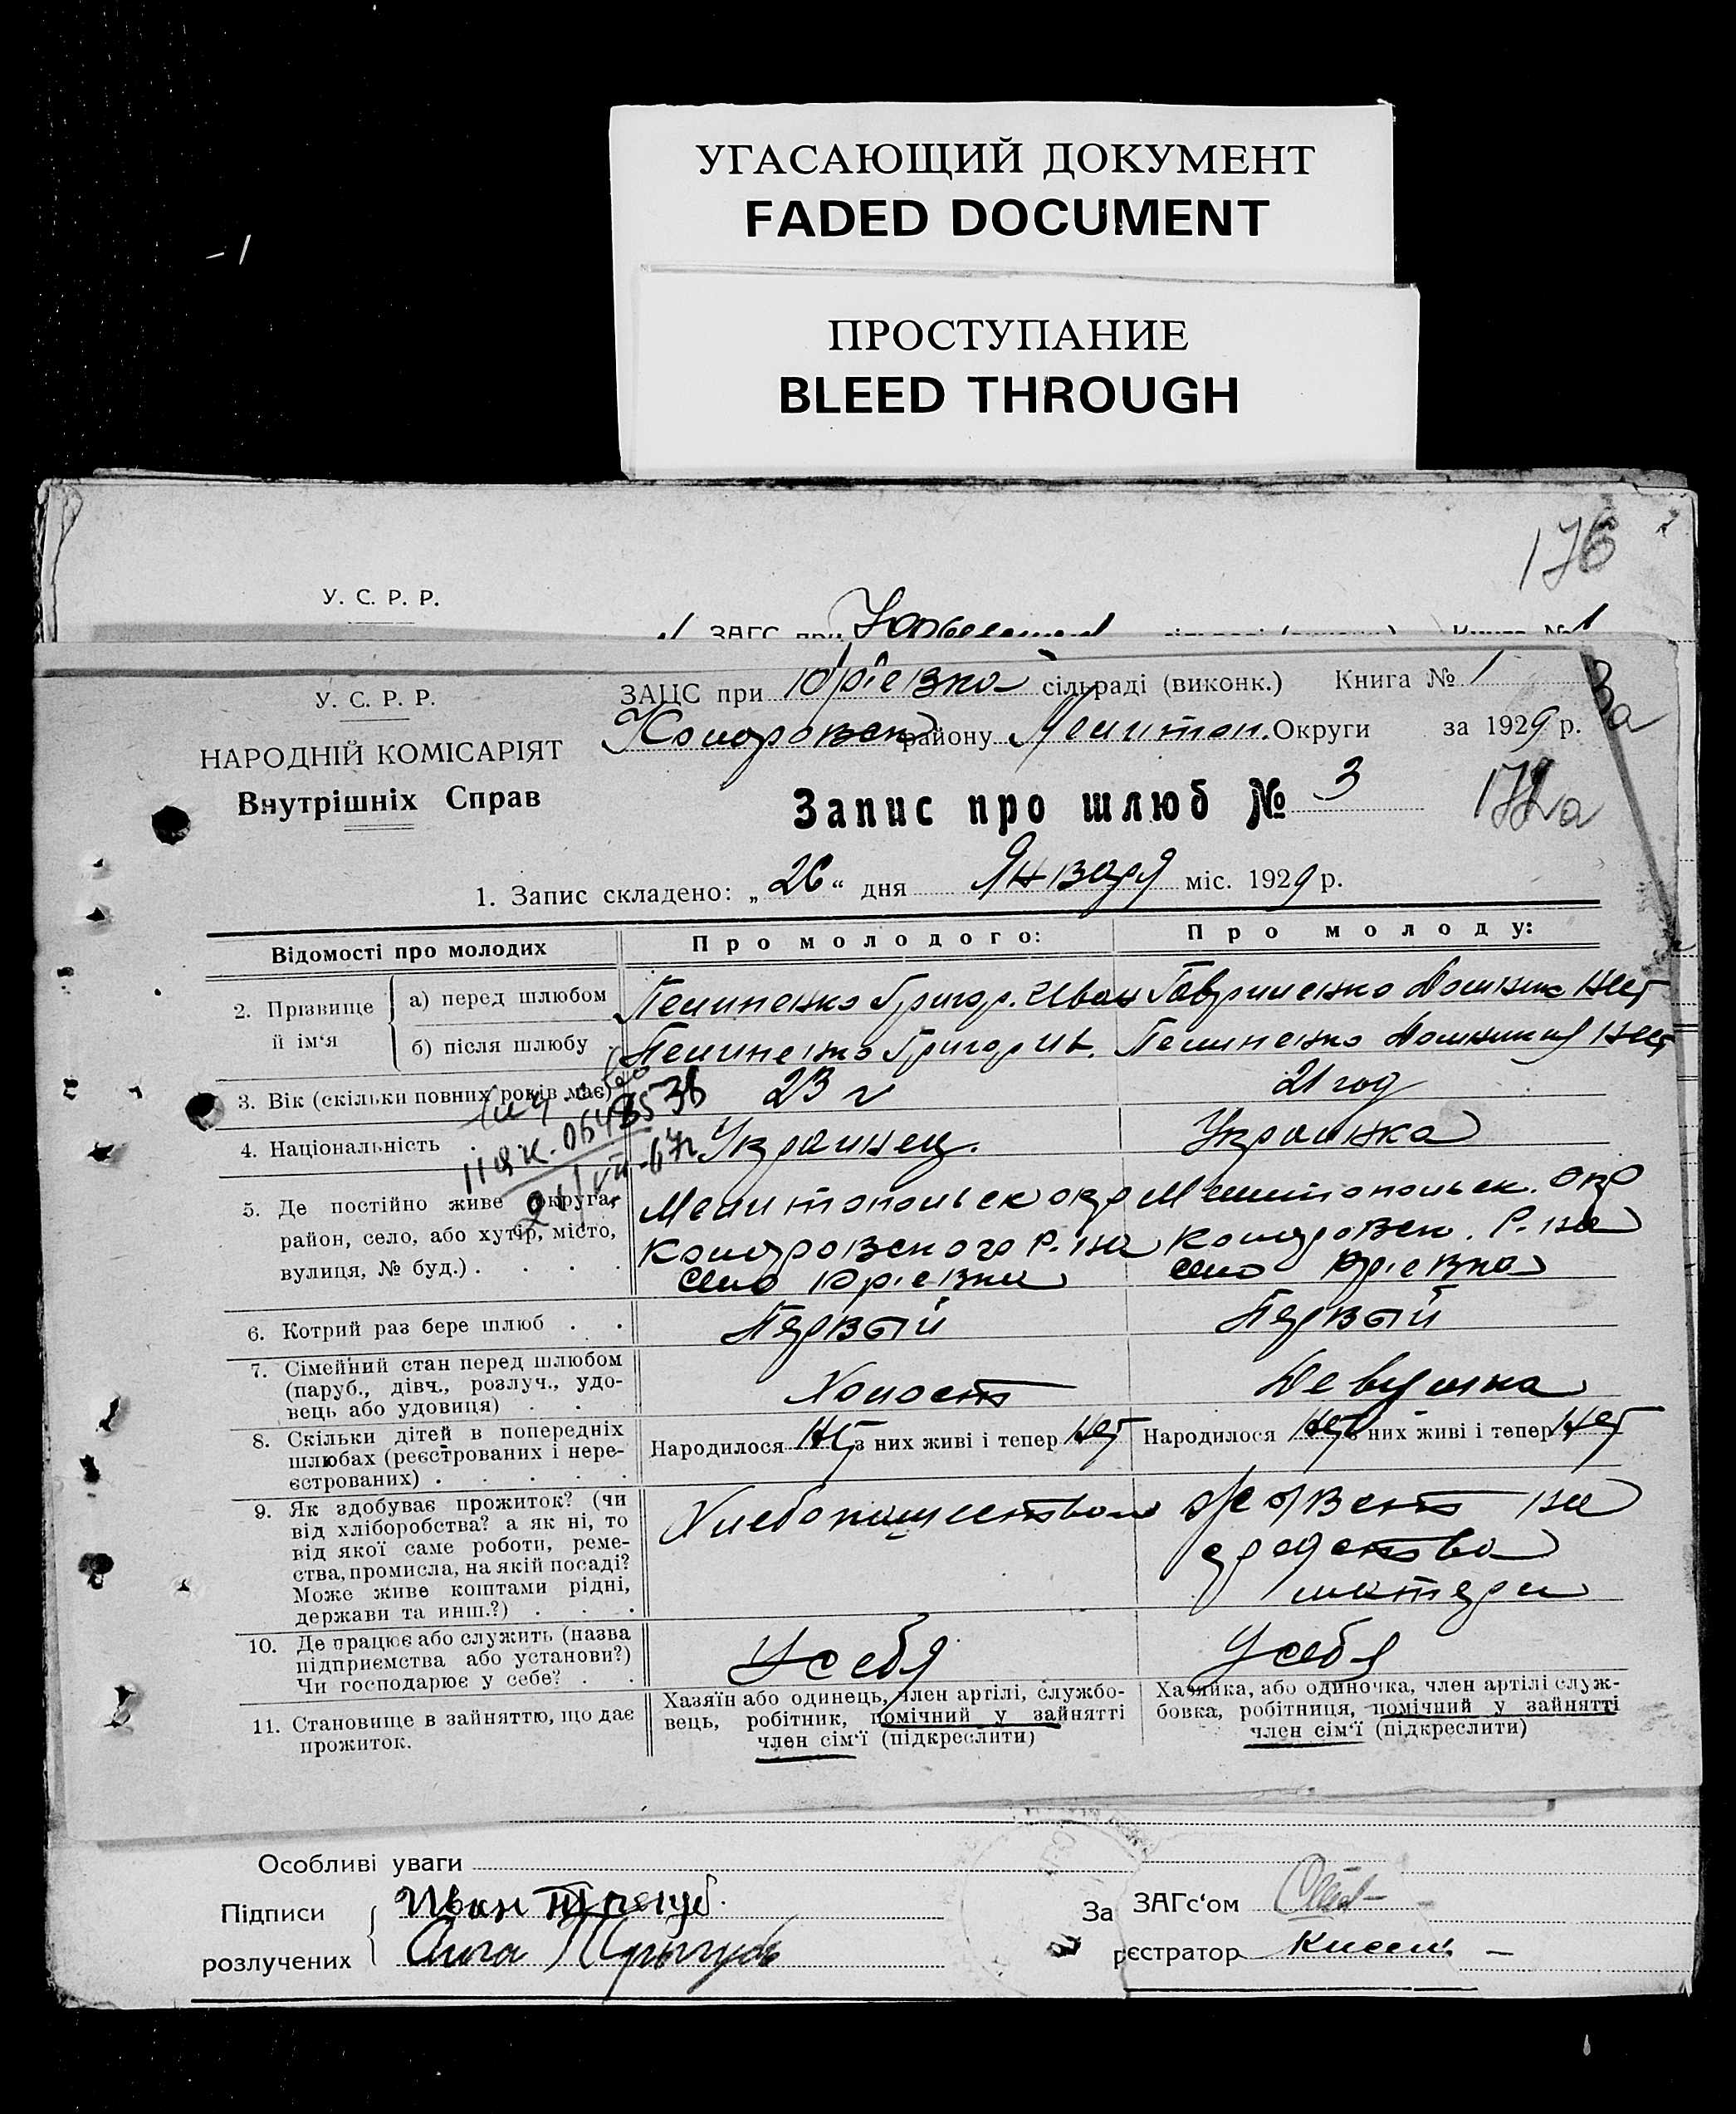 УГАСАЮЩИЙ ДОКУМЕНТ
FADED DOCUMENT
ПРОСТУПАНИЕ
BLEED THROUGH
176
У. С. Р. Р.
ЗАГС при
У. С. Р. Р.
НАРОДНІЙ КОМІСАРІЯТ
Внутрішніх Справ
ЗАЦС при Юріевка сільраді (виконк.) Книга № 1
3а
району Мелитоп. Округи за 1929 р.
Запис про шлюб № 3
1. Запис складено: „26“ дня Января міс. 1929 р.
Відомості про молодих
Про молодого:
Про молоду:
2. Прізвище й ім‘я
а) перед шлюбом
Григор. Иван
Гавриленко
б) після шлюбу
Григор Ив.
3. Вік (скільки повних років має)
23 г
21 год
4. Національність
Украинец.
Украинка
5. Де постійно живе округа,
район, село, або хутір, місто,
вулиця, № буд.) . . . .
Мелитопольск окр
Р. на
село Юріевка
Мелитопольск. окр
Р. на
село Юріевка
6. Котрий раз бере шлюб . .
Первый
Первый
7. Сімейний стан перед шлюбом
(паруб., дівч., розлуч., удо-
вець або удовиця) . .
Холост
Девушка
8. Скільки дітей в попередніх
шлюбах (реєстрованих і нере-
єстрованих) . . . . .
Народилося Нет з них живі і тепер Нет
Народилося Нет з них живі і тепер Нет
9. Як здобуває прожиток? (чи
від хліборобства? а як ні, то
від якої саме роботи, реме-
ства, промисла, на якій посаді?
Може живе коштами рідні,
держави та инш.?) . . .
Хлебопашеством
на
средства
матери
10. Де працює або служить (назва
підприємства або установи?)
Чи господарює у себе? . .
У себя
У себя
11. Становище в зайняттю, що дає
прожиток.
Хазяїн або одинець, член артілі, службо-
вець, робітник, помічний у зайнятті
член сім‘ї (підкреслити)
Хазяйка, або одиночка, член артілі служ-
бовка, робітниця, помічний у зайнятті
член сім‘ї (підкреслити)
Особливі уваги
Підписи
розлучених
Иван
За ЗАГс‘ом
рєстратор